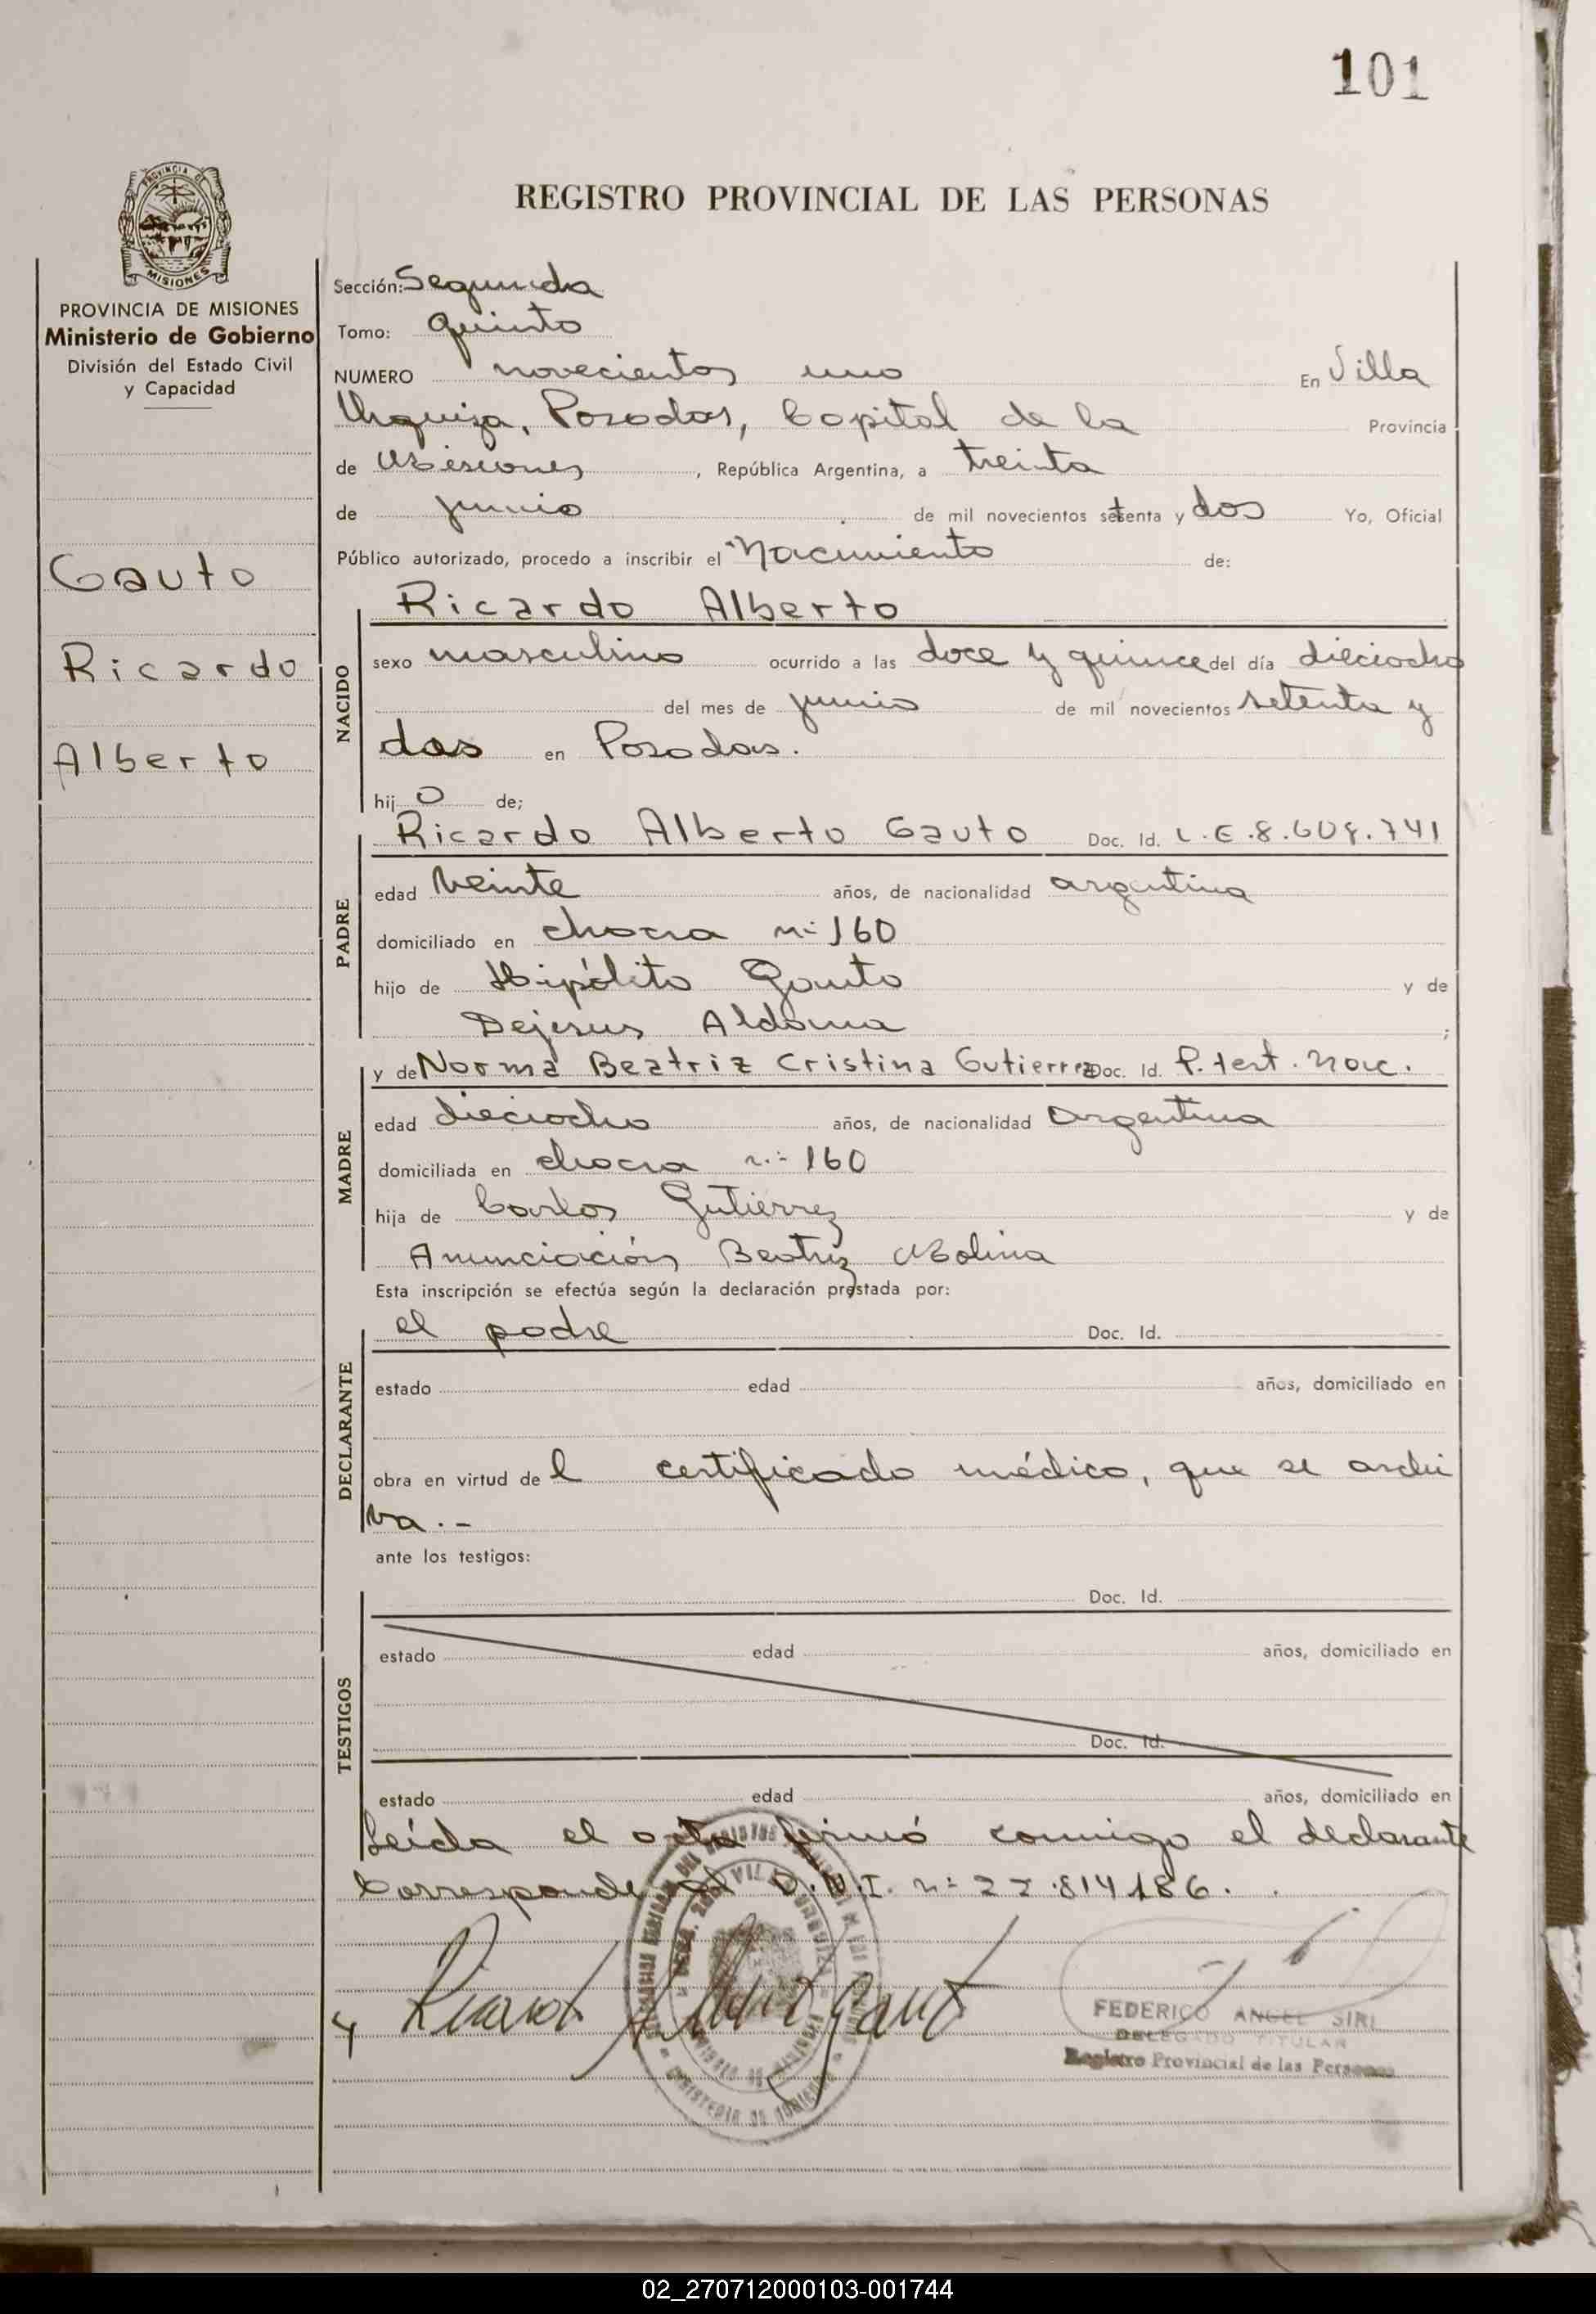 101
REGISTRO PROVINCIAL DE LAS PERSONAS
PROVINCIA DE
MISIONES
PROVINCIA DE MISIONES
Ministerio de Gobierno
División del Estado Civil
y Capacidad
Gauto
Ricardo
Alberto
Sección: Segunda
Tomo: Quinto
NUMERO novecientos uno En Villa
Urquiza, Posadas, Capital de la Provincia
de Misiones, República Argentina, a treinta
de junio de mil novecientos setenta y dos Yo, Oficial
Público autorizado, procedo a inscribir el Nacimiento de:
NACIDO
Ricardo Alberto
sexo masculino ocurrido a las doce y quince del día dieciocho
del mes de junio de mil novecientos setenta y
dos en Posadas.
hijo de;
PADRE
Ricardo Alberto Gauto Doc. Id. L.E. 8.609.741
edad veinte años, de nacionalidad argentina
domiciliado en chacra nº 160
hijo de Hipólito Gauto y de
Dejesus Aldama ;
MADRE
y de Norma Beatriz Cristina Gutierrez Doc. Id. P. test. Nac.
edad dieciocho años, de nacionalidad Argentina
domiciliada en chacra nº 160
hija de Carlos Gutiérrez y de
Anunciación Beatriz Molina
Esta inscripción se efectúa según la declaración prestada por:
DECLARANTE
el padre Doc. Id.
estado edad años, domiciliado en
obra en virtud del certificado médico, que se archi
va.-
ante los testigos:
TESTIGOS
Doc. Id.
estado edad años, domiciliado en
Doc. Id.
estado edad años, domiciliado en
Leída el acta firmó conmigo el declarante
Corresponde al D.N.I. nº 22.814.186.
Ricardo Alberto Gauto
FEDERICO ANGEL SIRI
DELEGADO TITULAR
Registro Provincial de las Personas
02_270712000103-001744